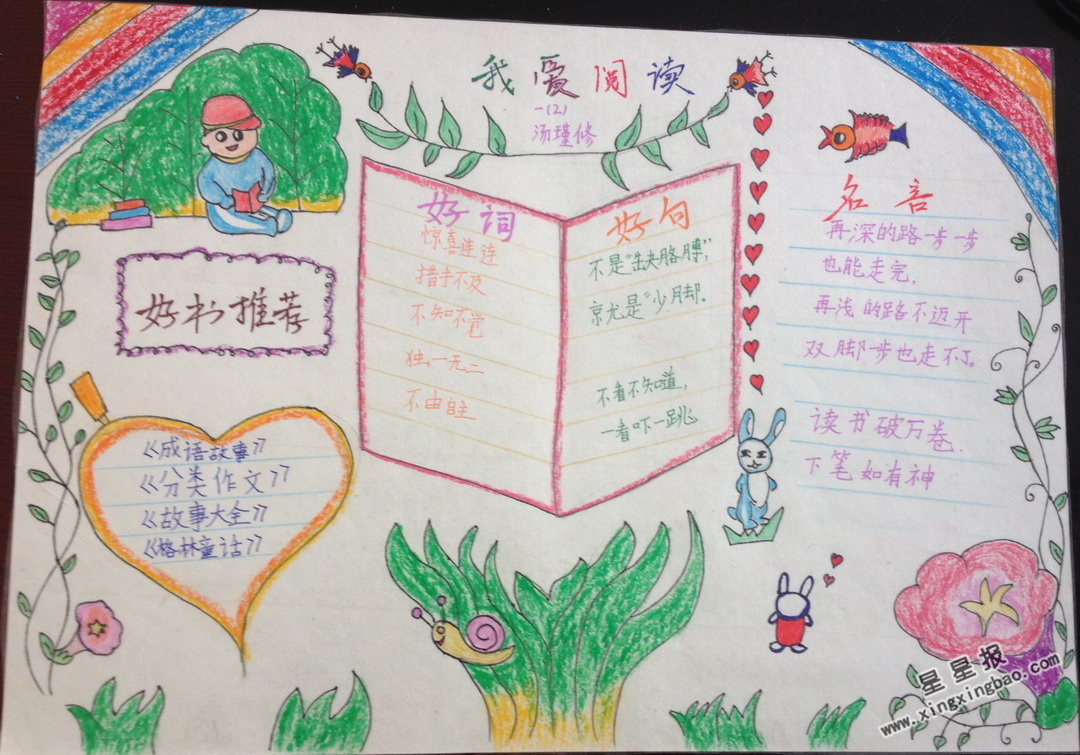 我爱阅读
一(2)
汤瑾修
好书推荐
《成语故事》
《分类作文》
《故事大全》
《格林童话》
好词
惊喜连连
措手不及
不知不觉
独一无二
不由自主
好句
不是“缺胳膊”,
就是“少脚.
不看不知道,
一看吓一跳
名言
再深的路一步一步
也能走完,
再浅的路不迈开
双脚一步也走不了。
读书破万卷,
下笔如有神
星星报
www.xingxingbao.com